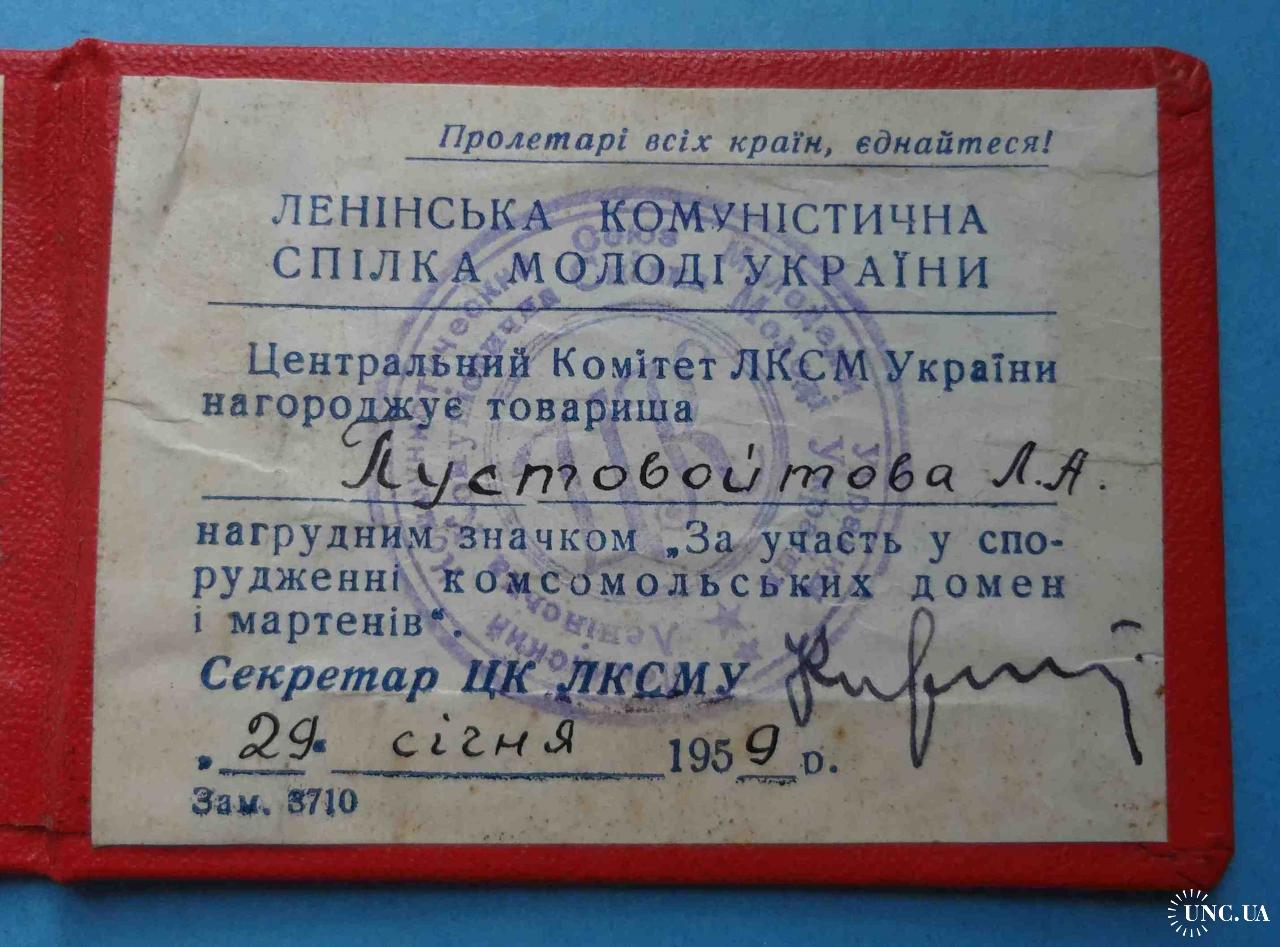 Пролетарі всіх країн, єднайтеся!
ЛЕНІНСЬКА КОМУНІСТИЧНА
СПІЛКА МОЛОДІ УКРАЇНИ
Центральний Комітет ЛКСМ України
нагороджує товариша
Пустовойтова Л.А.
нагрудним значком „За участь у спо-
рудженні комсомольських домен
і мартенів“.
Секретар ЦК ЛКСМУ
„29“ січня 1959 р.
Зам. 3710
UNC.UA